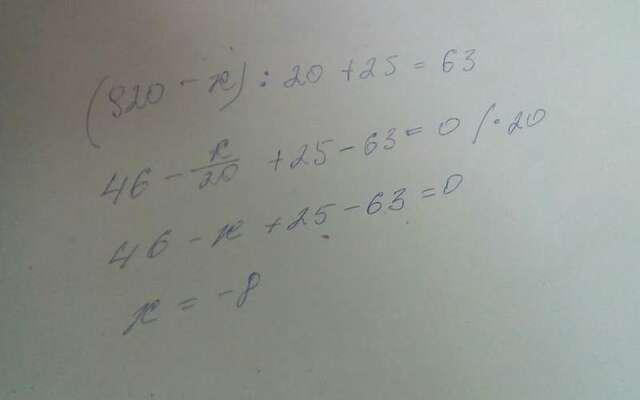 (920 - x) : 20 + 25 = 63
46 - x/20 + 25 - 63 = 0 / · 20
46 - x + 25 - 63 = 0
x = -8